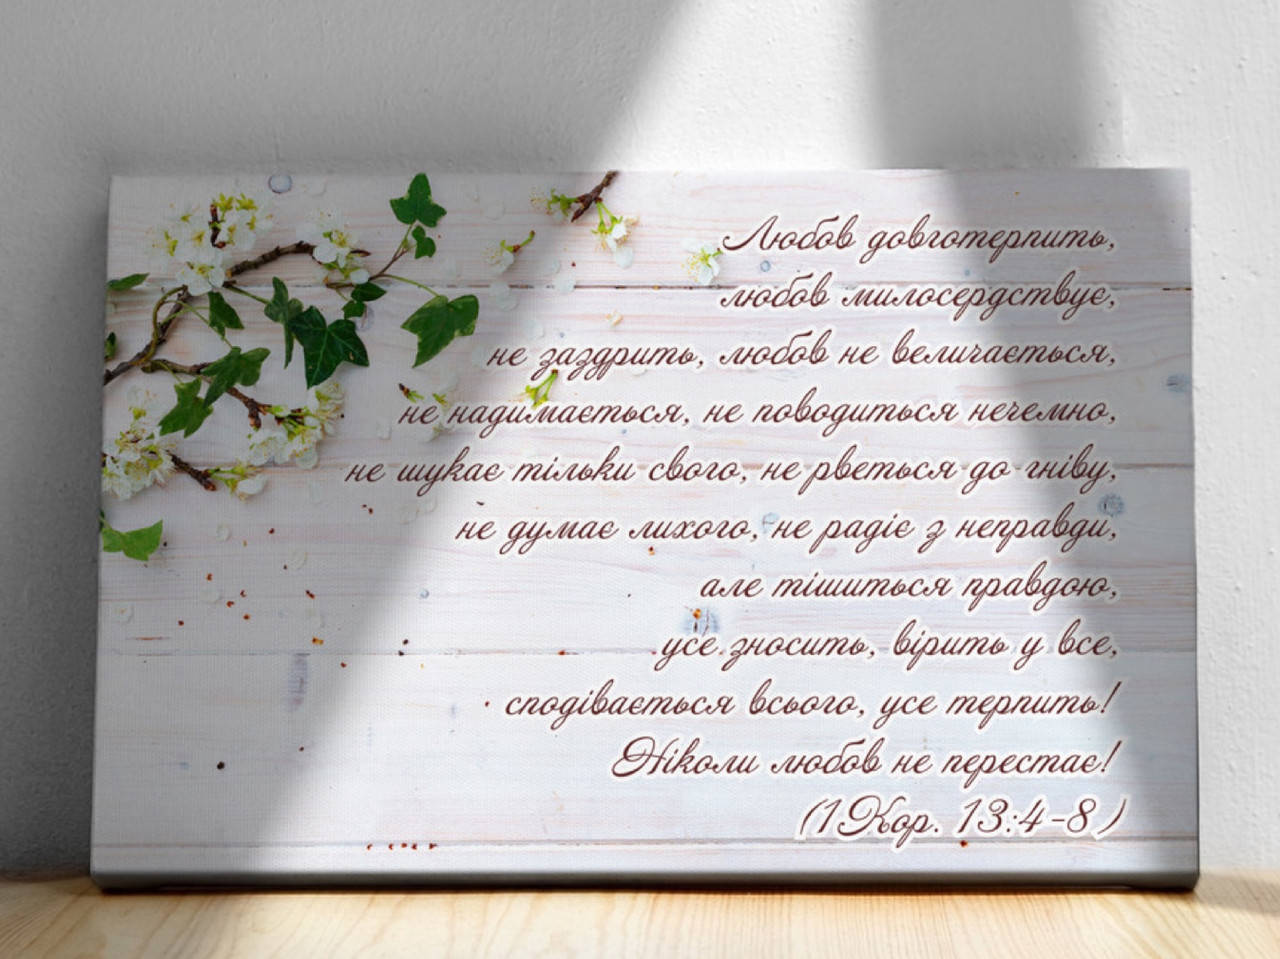 Любов довготерпить,
любов милосердствує,
не заздрить, любов не величається,
не надимається, не поводиться нечемно,
не шукає тільки свого, не рветься до гніву,
не думає лихого, не радіє з неправди,
але тішиться правдою,
усе зносить, вірить у все,
сподівається всього, усе терпить!
Ніколи любов не перестає!
(1Кор. 13:4-8)